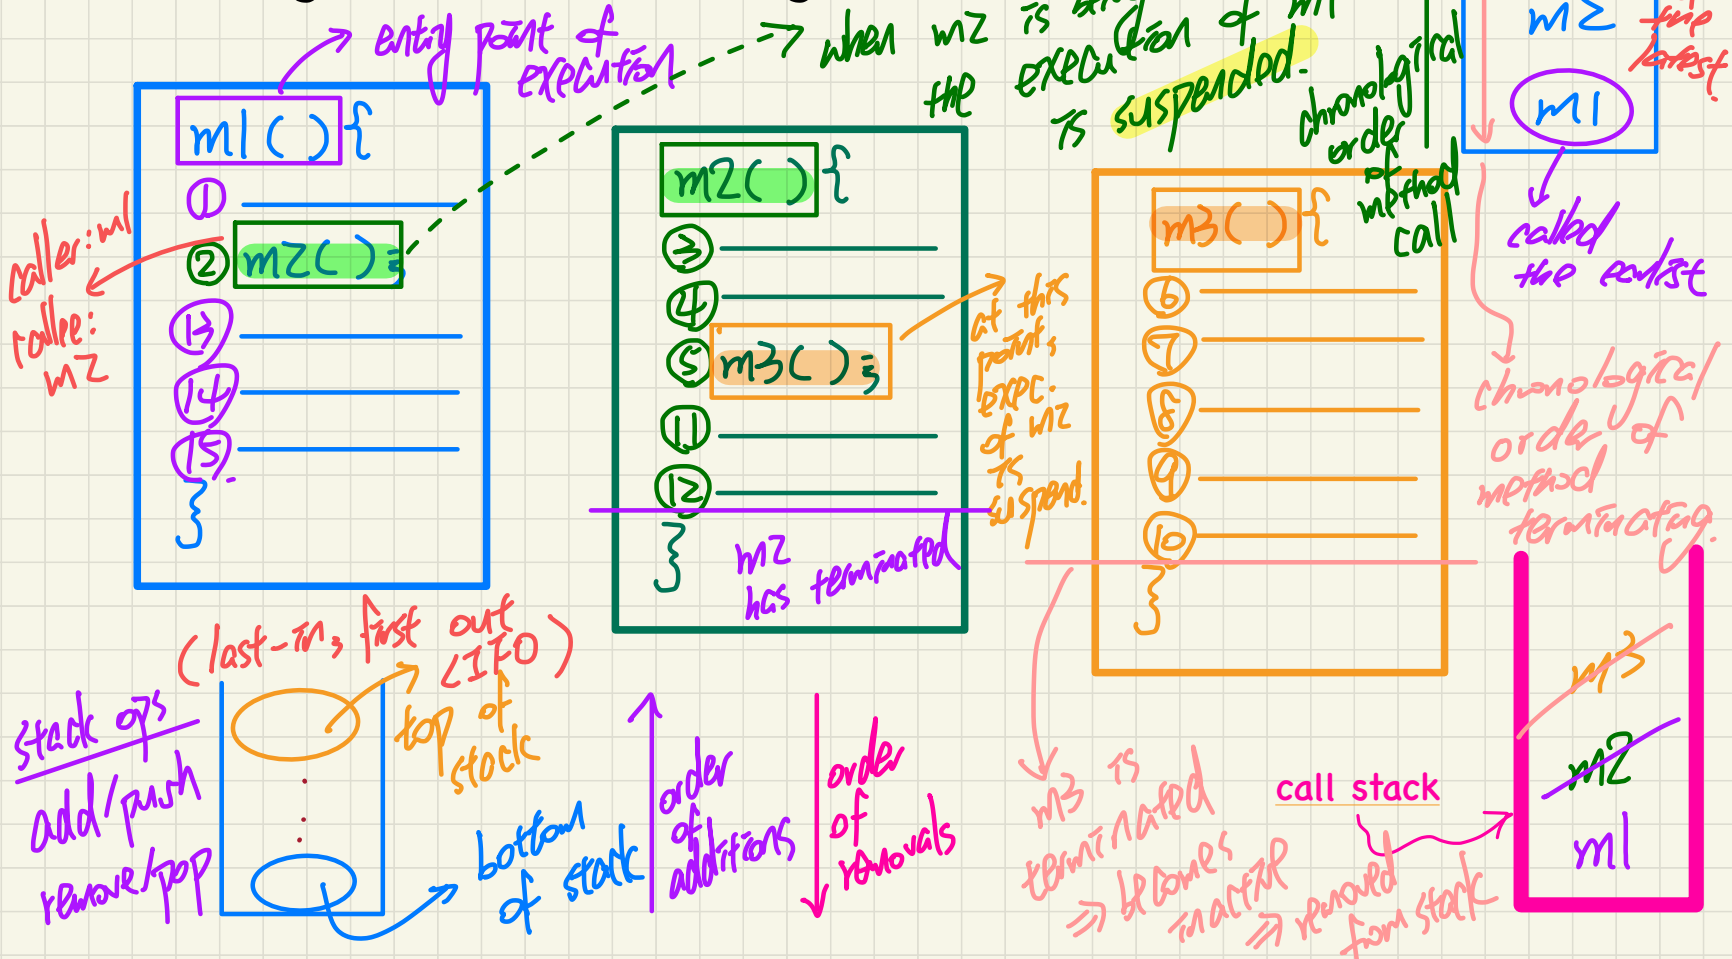 entry point of
execution
when m2 is
the execution of m1
is suspended.
chronological
order
of
method
call
m2
m1
the
latest
called
the earlist
m1() {
1
2 m2();
13
14
15
}
caller: m1
callee:
m2
m2() {
3
4
5 m3();
11
12
}
m2
has terminated
at this
point,
exec.
of m2
is
suspend.
m3() {
6
7
8
9
10
}
chronological
order of
method
terminating.
(last-in, first out
LIFO)
stack ops
add/push
remove/pop
top of
stack
bottom
of stack
order
of
additions
order
of
removals
m3 is
terminated
⇒ becomes
inactive
⇒ removed
from stack
call stack
m3
m2
m1